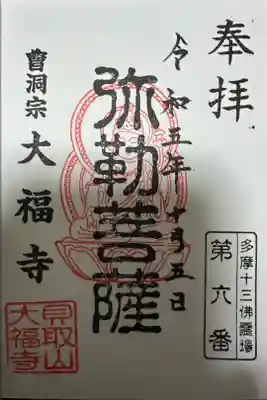 奉拝
令和五年十月五日
弥勒菩薩
曹洞宗 大福寺
多摩十三佛霊場
第六番
貝取山
大福寺